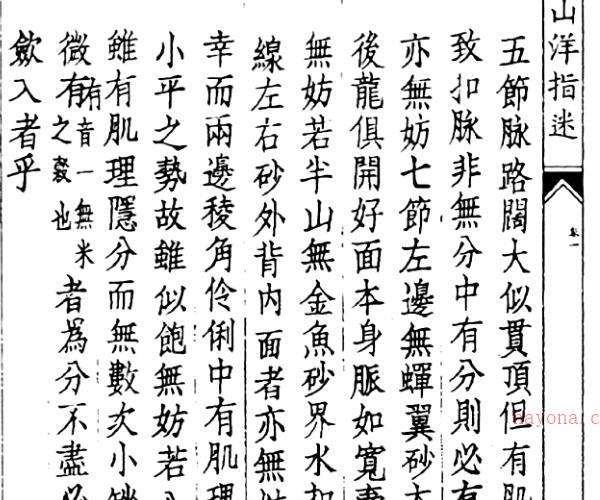 山洋指迷
卷一
五節脉路闊大似貫頂但有肌
致扣脉非無分中有分則必有
亦無妨七節左邊無蟬翼砂本
後龍俱開好面本身脈如寬
無妨若半山無金魚砂界水
線左右砂外背内面者亦無
幸而兩邊稜角伶俐中有肌理
小平之勢故雖似飽無妨若
雖有肌理隱分而無數次小
微有有音一無米之數也者為分不盡必
斂入者乎
nayona.c